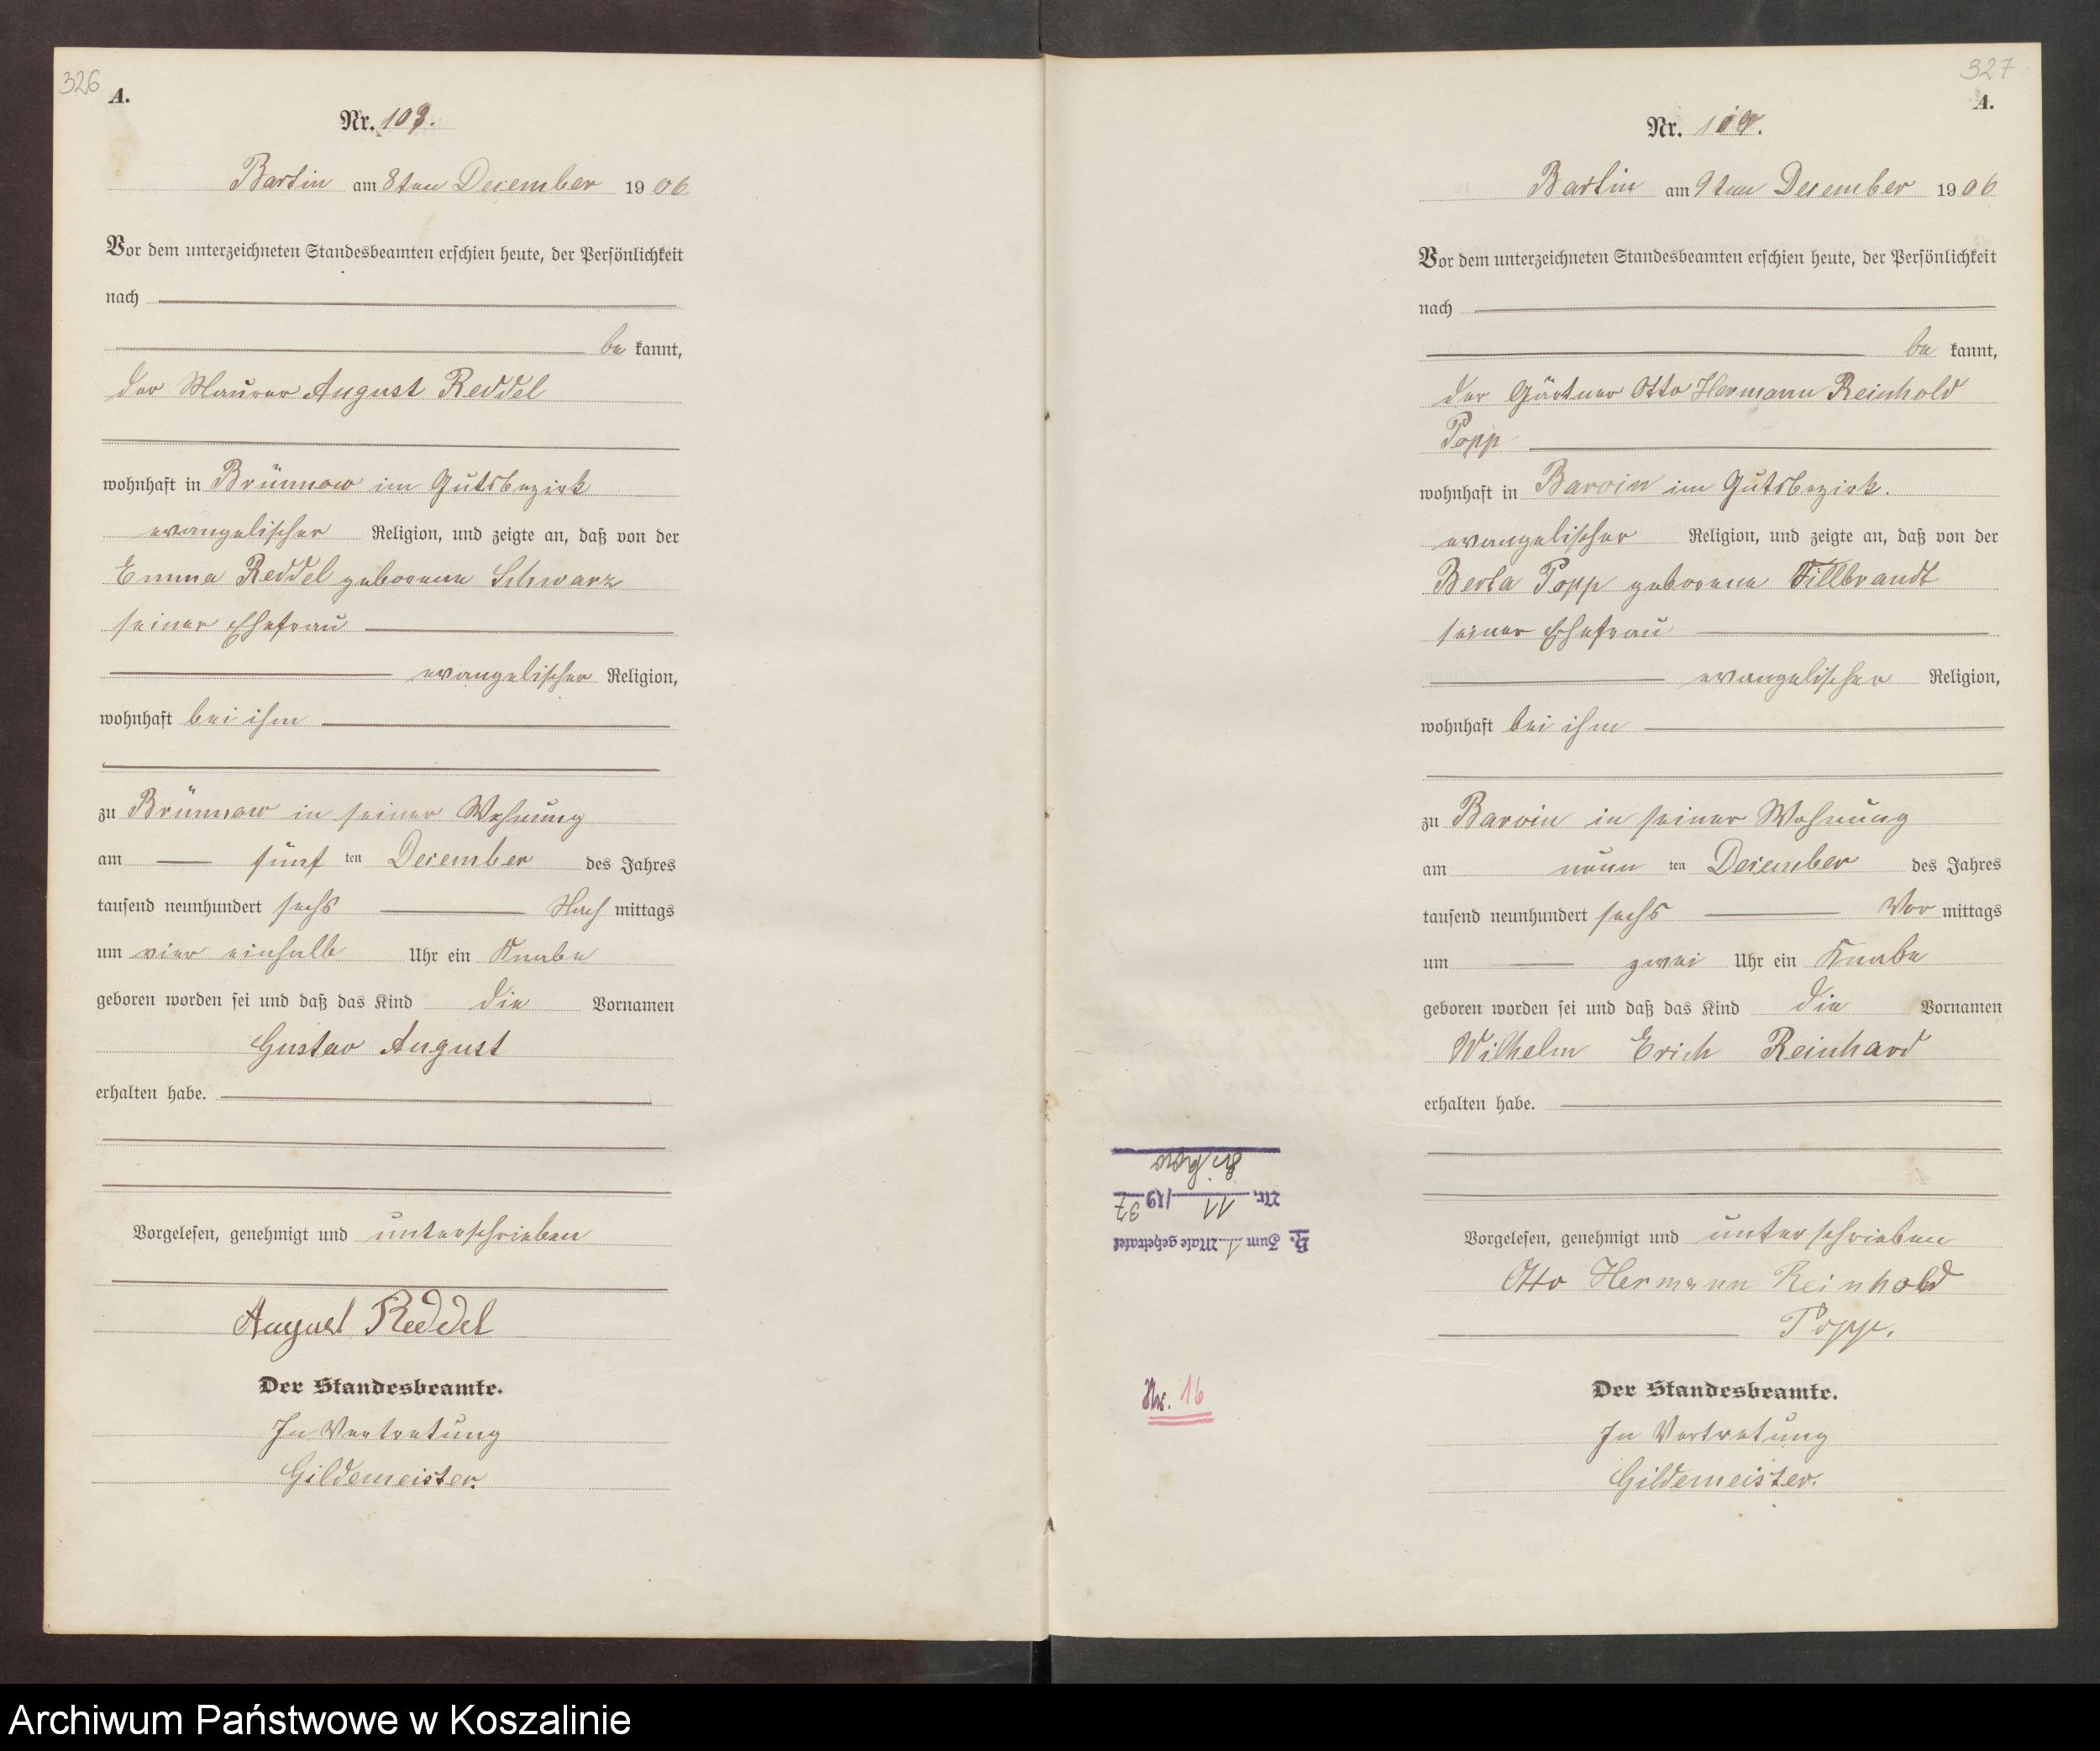 326
A.
Nr. 103.
Bartin am 8ten Dezember 1906
Vor dem unterzeichneten Standesbeamten erschien heute, der Persönlichkeit
nach
be kannt,
der Maurer August Reddel
wohnhaft in Brünnow im Gutsbezirk
evangelischer Religion, und zeigte an, daß von der
Emma Reddel geborene Schwarz
seiner Ehefrau
evangelischer Religion,
wohnhaft bei ihm
zu Brünnow in seiner Wohnung
am fünf ten Dezember des Jahres
tausend neunhundert sechs Nach mittags
um vier einhalb Uhr ein Knabe
geboren worden sei und daß das Kind die Vornamen
Gustav August
erhalten habe.
Vorgelesen, genehmigt und unterschrieben
August Reddel
Der Standesbeamte.
In Vertretung
Gildemeister.
327
A.
Nr.
Bartin am 9ten Dezember 1906
Vor dem unterzeichneten Standesbeamten erschien heute, der Persönlichkeit
nach
be kannt,
der Gärtner Otto Hermann Reinhold
Popp
wohnhaft in Barvin im Gutsbezirk.
evangelischer Religion, und zeigte an, daß von der
Berta Popp geborene Fillbrandt
seiner Ehefrau
evangelischer Religion,
wohnhaft bei ihm
zu Barvin in seiner Wohnung
am neun ten Dezember des Jahres
tausend neunhundert sechs Vor mittags
um zwei Uhr ein Knabe
geboren worden sei und daß das Kind die Vornamen
Wilhelm Erich Reinhard
erhalten habe.
Vorgelesen, genehmigt und unterschrieben
Otto Hermann Reinhold
Popp.
Der Standesbeamte.
In Vertretung
Gildemeister.
H. Zum 1. Male geheiratet
Nr. 11 /19 37
Nr. 16
Archiwum Państwowe w Koszalinie